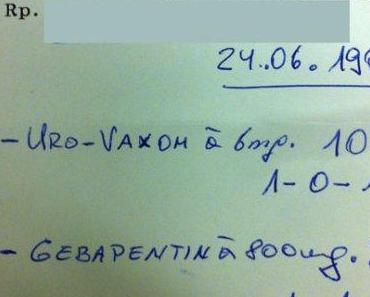 Rp.
24.06.19
- URO-VAXOM à 6mg. 10
1-0-1
- GEBAPENTIN à 800mg.